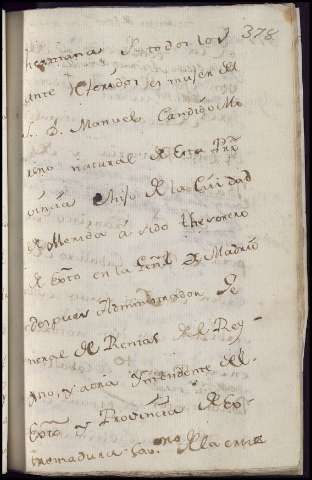 378
hermana de todos los
ante referidos es muger del
S. D. Manuel Candido Mo
reno natural de esta Prõ
vincia e hijo de la Ciudad
de Merida á sido thesorero
de Exto en la de Madrid
despues Administrador Ge
neral de Rentas del Rey-
no, y aora Yntendente del
Exto y Provincia de Ex-
tremadura Cavo de la cruz